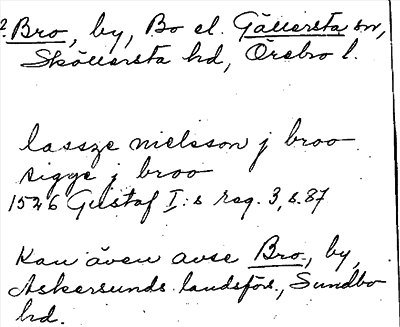 2. Bro, by, Bo el. Gällersta sn,
Sköllersta hd, Örebro l.
lassze nielsson j broo
sigge j broo
1526 Gustaf I:s reg. 3, s. 87
Kan även avse Bro, by,
Askersunds landsförs., Sundbo
hd.